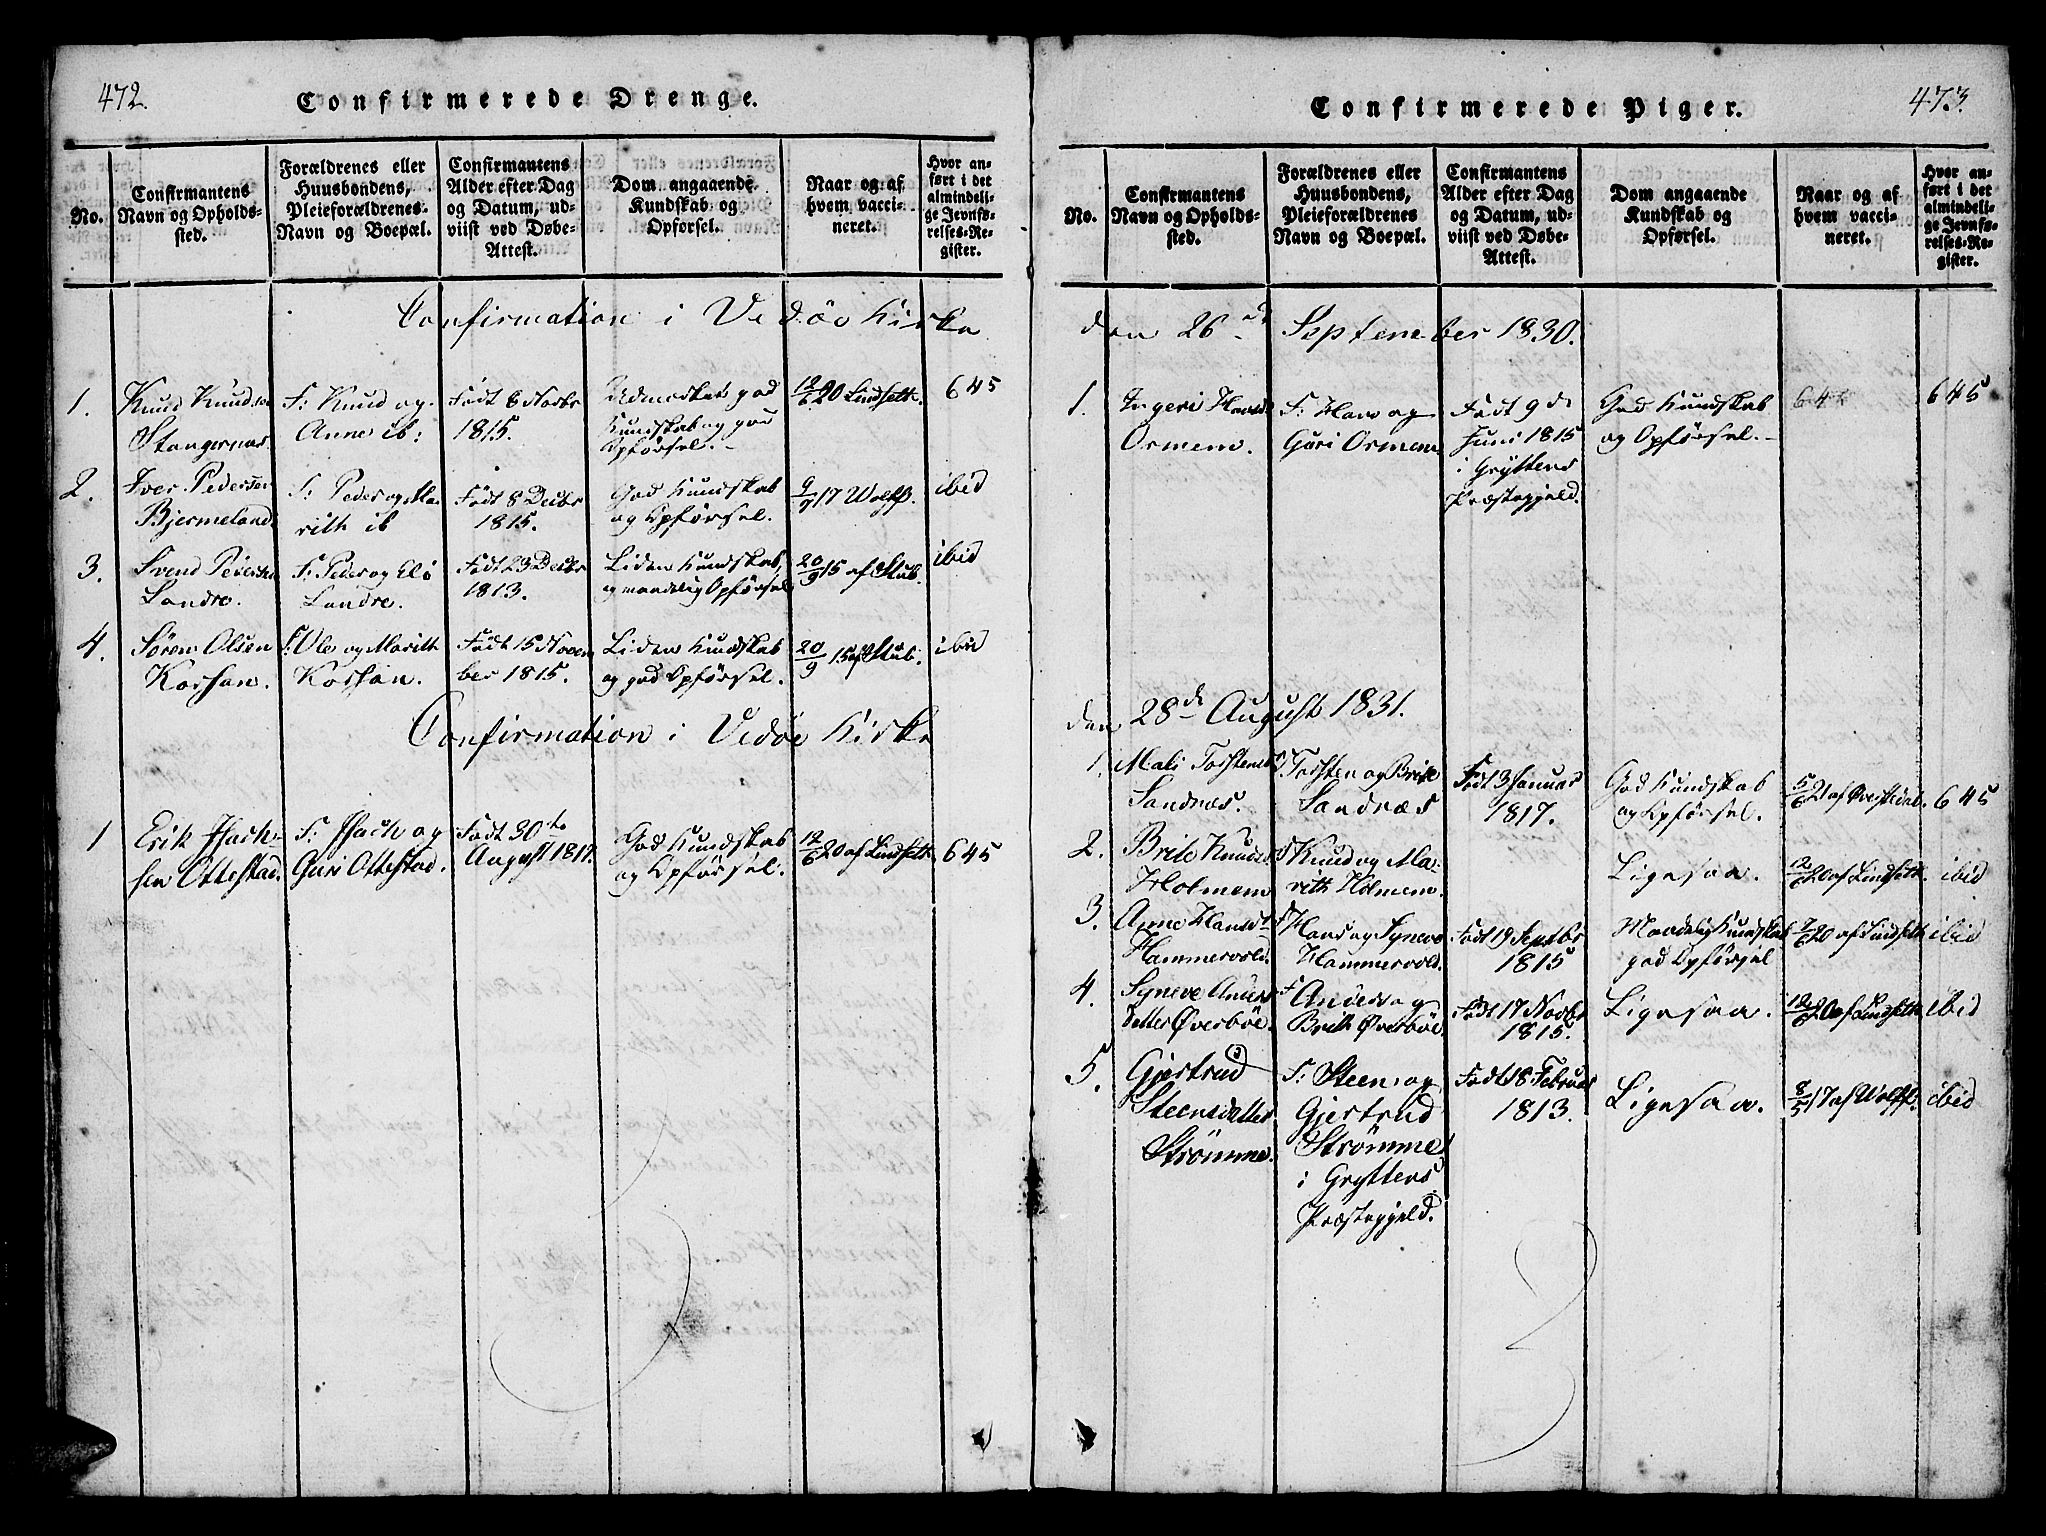 472.
Confirmerede Drenge.
No.
Confirmantens
Navn og Opholds-
sted.
Forældrenes eller
Huusbondens,
Pleieforældrenes
Navn og Boepæl.
Confirmantens
Alder efter Dag
og Datum, ud-
viist ved Døbe-
Attest.
Dom angaaende
Kundskab og
Opførsel.
Naar og af
hvem vacci-
neret.
Hvor an-
ført i det
almindeli-
ge Jevnfø-
relses-Re-
gister.
Confirmation i Vedöe Kirke
1.
Knud Knudsen
Stangernæs.
F: Knud og
Anne ib:
Födt 6 Novbr
1815.
Udmærket god
Kundskab og god
Opførsel.
12/6 20 Lindseth.
645
2.
Iver Pedersen
Bjermeland
F: Peder og Ma-
rith ib
Födt 8 Decbr
1815.
God Kundskab
og Opførsel.
9/7 17 Wolff.
ibid
3.
Svend Pedersen
Sandre.
F: Peder og Eli
Sandre.
Födt 23 Decbr
1813.
Liden Kundskab,
og maadelig Opførsel
20/9 15 af Stub.
ibid
4.
Sören Olsen
Korsan.
F: Ole og Marith
Korsan.
Födt 15 Novem
ber 1815.
Liden Kundskab
og god Opførsel.
20/9 15 af Stub.
ibid
Confirmation i Vedöe Kirke
1
Erik
sen Ottestad.
F:
og
Guri Ottestad.
Födt 30te
August 1817.
God Kundskab
og Opførsel.
12/6 20 af Lindseth.
645
473.
Confirmerede Piger.
No.
Confirmantens
Navn og Opholds-
sted.
Forældrenes eller
Huusbondens,
Pleieforældrenes
Navn og Boepæl.
Confirmantens
Alder efter Dag
og Datum, ud-
viist ved Døbe-
Attest.
Dom angaaende
Kundskab og
Opførsel.
Naar og af
hvem vacci-
neret.
Hvor an-
ført i det
almindeli-
ge Jevnfø-
relses-Re-
gister.
den 26de September 1830.
1.
Ingeri Hansd
Ormem.
F: Hans og
Guri Ormem
Födt 9de
Juni 1815
i Gryttens
Præstegjeld.
God Kundskab
og Opførsel.
645
den 28de August 1831.
1.
Mali Torstensd
Sandnæs.
F Torsten og Brite
Sandnæs
Födt 3 Januar
1817.
God Kundskab
og Opførsel.
645
2.
Brite Knudsd
Holmem
F Knud og Ma-
rith Holmem.
Ligesaa.
12/6 20 af Lindseth.
ibid
3.
Anne Hansd
Hammervold.
F Hans og Syneve
Hammervold.
Födt 19 Septbr
1815
Maadelig Kundskab
god Opførsel
20 af Lindseth
ibid
4.
Syneve Anders
datter Øverböe.
F Anders og
Brith Øverböe
Födt 17 Novbr
1815.
Ligesaa.
12/6 20 af Lindseth
ibid
5.
Gjertrud
Steensdatter
Strömme.
F: Steen og
Gjertrud
Strömme
i Gryttens
Præstegjeld.
Födt 18 Februar
1813.
Ligesaa.
8/5 17 af Wolff.
ibid